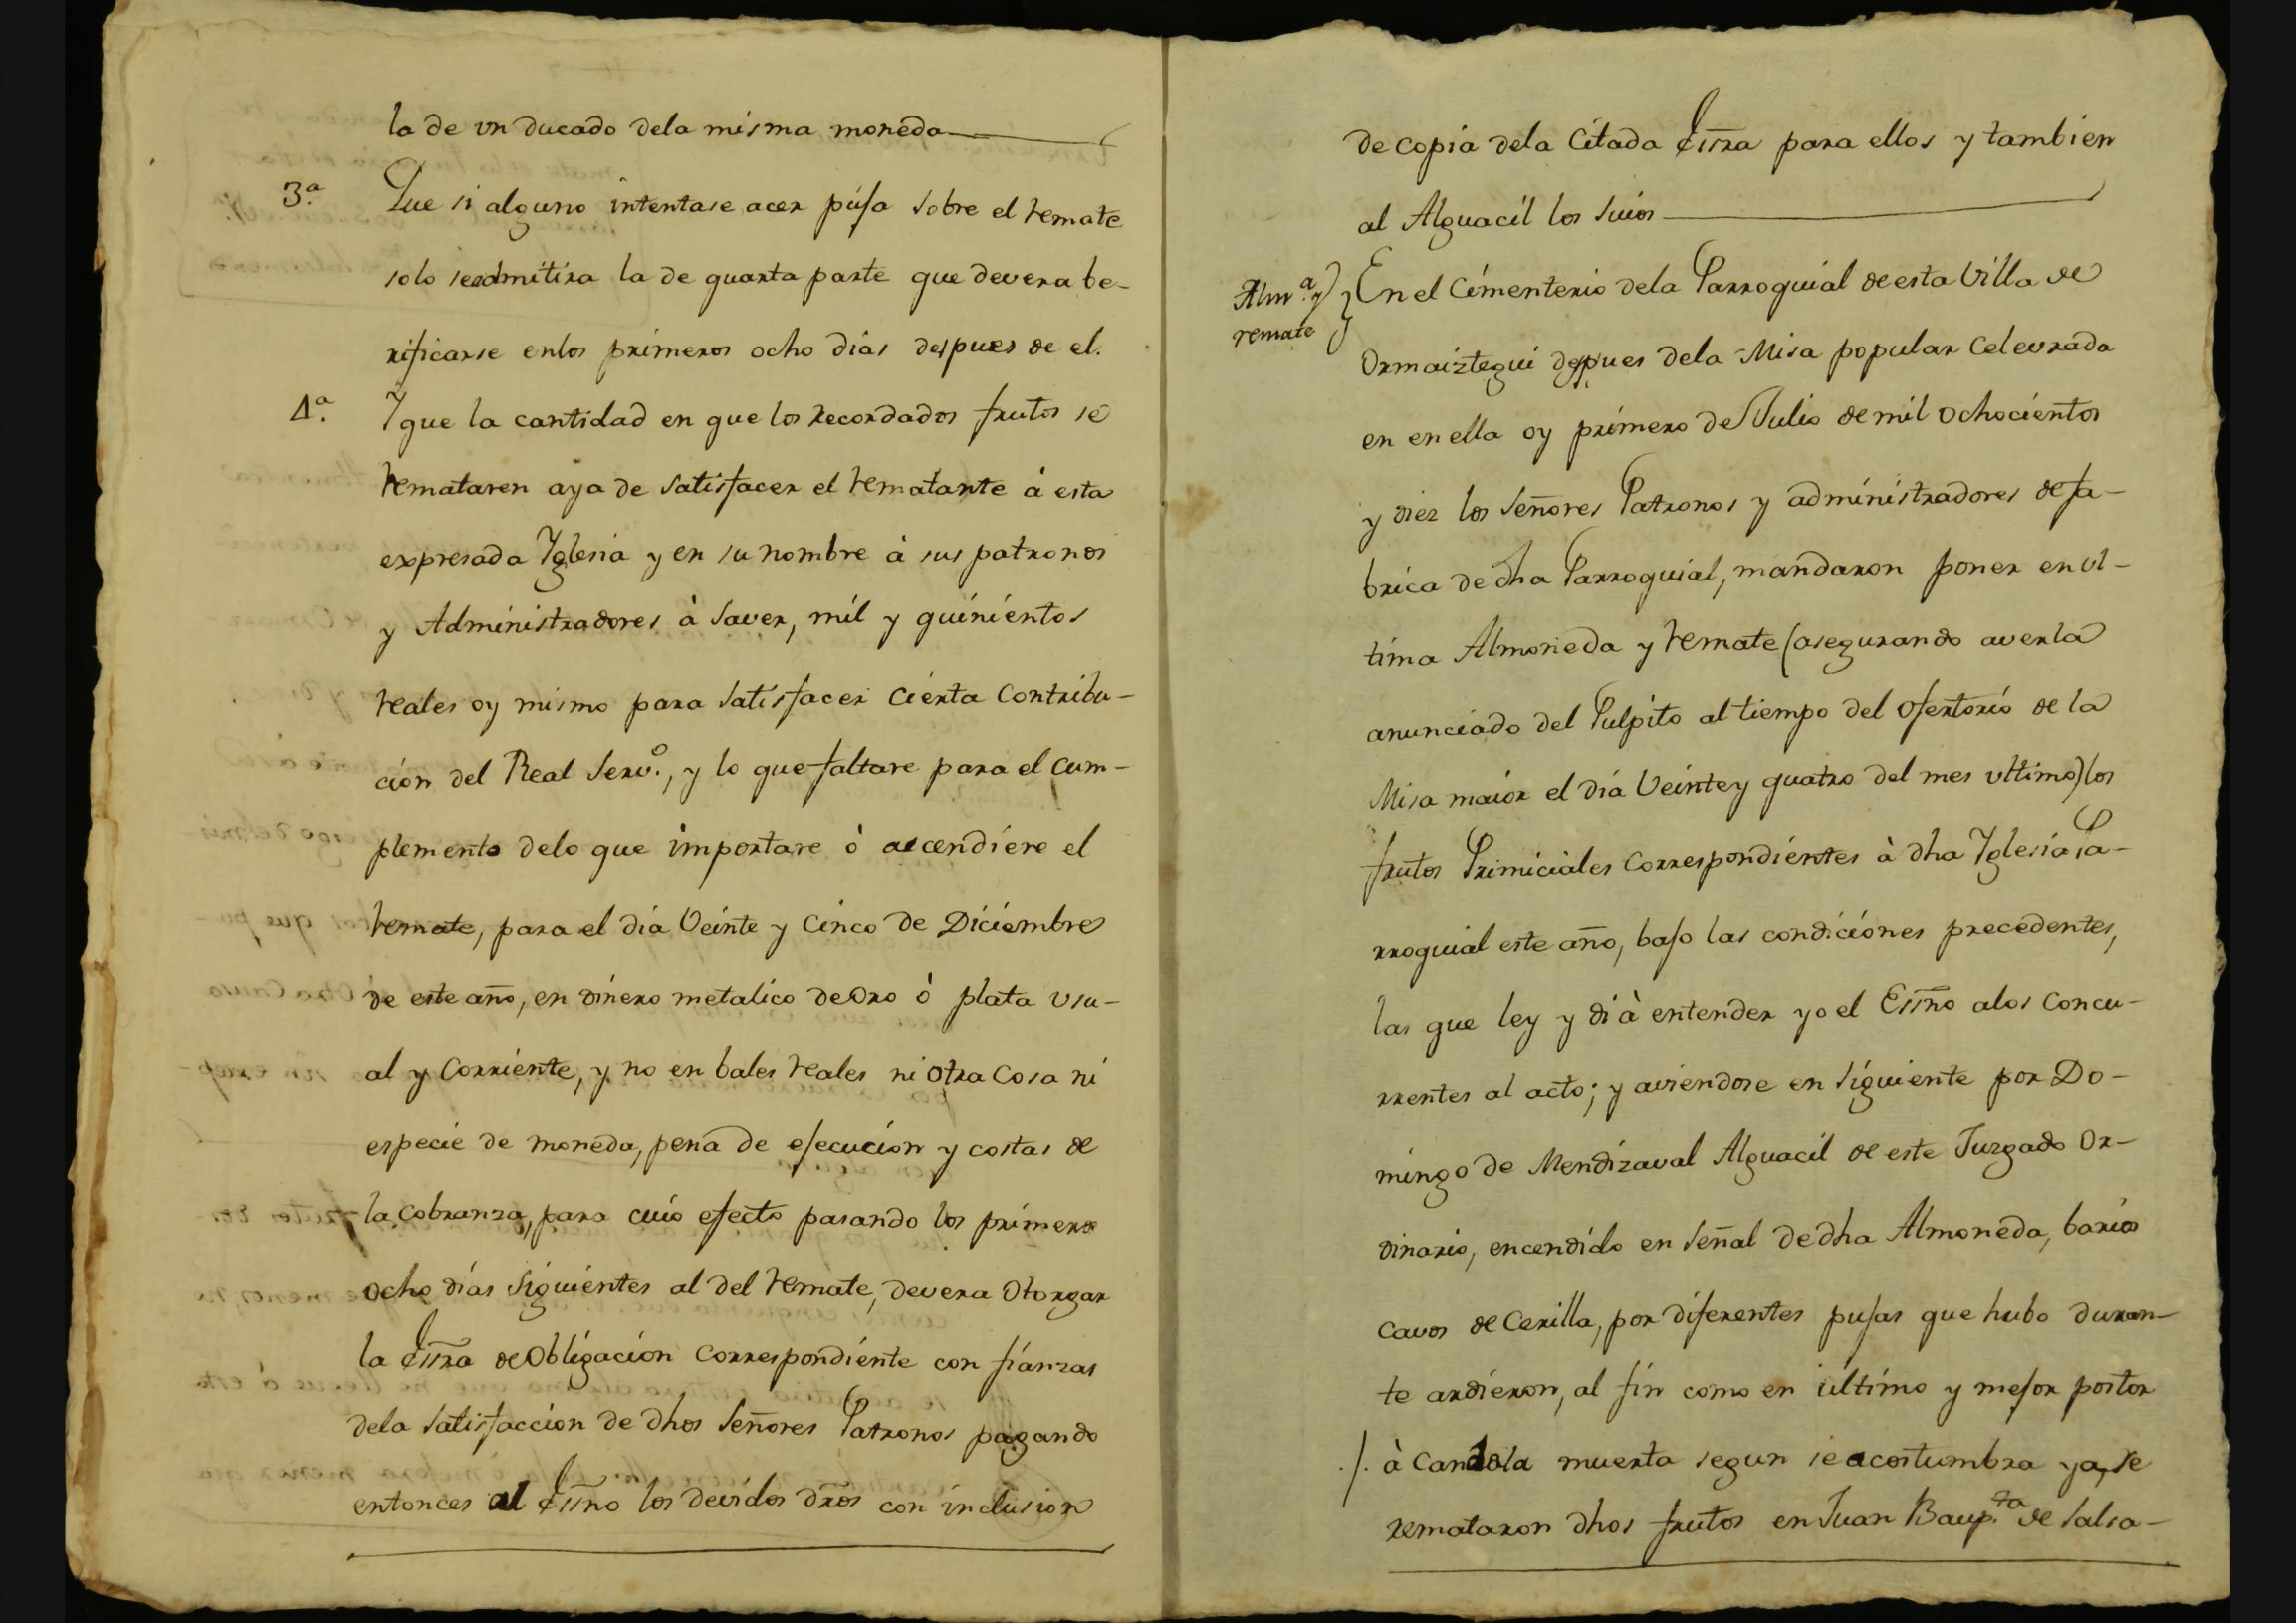 la de vn ducado dela misma moneda
3.ª Que si alguno intentase acer pùja sobre el remate
solo seadmitira la de quarta parte que devera be-
rificarse enlos primeros ocho dias despues de el.
4.ª Y que la cantidad en que los recordados frutos se
remataren aya de satisfacer el rematante à esta
expresada Yglesia y en su nombre à sus patronos
y Administradores à saver, mil y quinientos
reales oy mismo para satisfacer cierta contribu-
ción del Real Serv.º, y lo que faltare para el cum-
plemento delo que importare ò ascendiere el
remate, para el dia Veinte y Cinco de Diciembre
de este año, en dinero metalico de Oro ò plata vsu-
al y Corriente, y no en bales reales ni otra Cosa ni
especie de moneda, pena de ejecucion y costas de
la cobranza, para cuio efecto pasando los primeros
ocho dias siguientes al del remate, devera otorgar
la Essra de Obligacion Correspondiente con fianzas
dela satisfaccion de dhos Señores Patronos pagando
entonces al Essno los devidos dros con inclusion
de copia dela Citada Essra para ellos y tambien
al Alguacil los suios
Alm.ª y
remate
En el Cimenterio dela Parroquial de esta Villa de
Ormaiztegui despues dela Misa popular Celevrada
en en ella oy primero de Julio de mil ochocientos
y diez los Señores Patronos y administradores de fa-
brica de dha Parroquial, mandaron poner en vl-
tima Almoneda y remate (asegurando averla
anunciado del Pulpito al tiempo del Ofertorio de la
Misa maior el dia Veinte y quatro del mes vltimo) los
frutos Primiciales Correspondientes à dha Yglesia Pa-
rroquial este año, bajo las condiciones precedentes,
las que ley y di à entender yo el Essno alos Concu-
rrentes al acto; y aviendose en siguiente por Do-
mingo de Mendizaval Alguacil de este Juzgado Or-
dinario, encendido en señal de dha Almoneda, barios
cavos de Cerilla, por diferentes pujas que hubo duran-
te ardieron, al fin como en ultimo y mejor postor
./. à Candela muerta segun se acostumbra ya, se
remataron dhos frutos en Juan Baup.ta de Salsa-